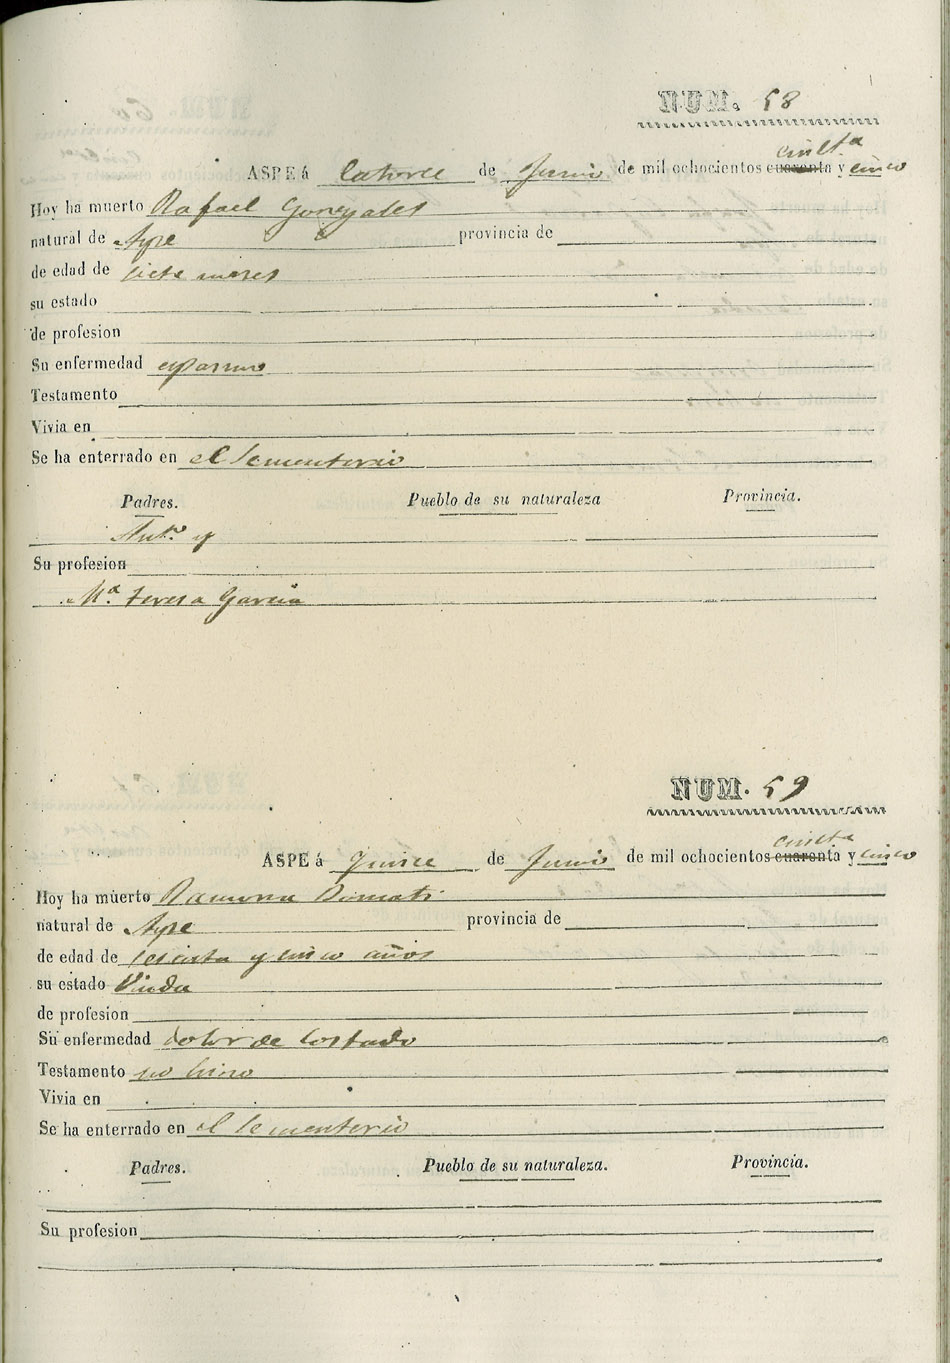 NUM. 58
ASPE á Catorce de Junio de mil ochocientos cuarenta cincta y cinco
Hoy ha muerto Rafael Gonzales
natural de Aspe provincia de
de edad de siete meses
su estado
de profesion
Su enfermedad espasmo
Testamento
Vivia en
Se ha enterrado en el Sementerio
Padres. Pueblo de su naturaleza Provincia.
Antº y
Su profesion
Mª Teresa Garcia
NUM. 59
ASPE á Quince de Junio de mil ochocientos cuarenta cincta y cinco
Hoy ha muerto Ramona
natural de Aspe provincia de
de edad de sesenta y cinco años
su estado Viuda
de profesion
Su enfermedad dolor de costado
Testamento no hizo
Vivia en
Se ha enterrado en el Sementerio
Padres. Pueblo de su naturaleza. Provincia.
Su profesion